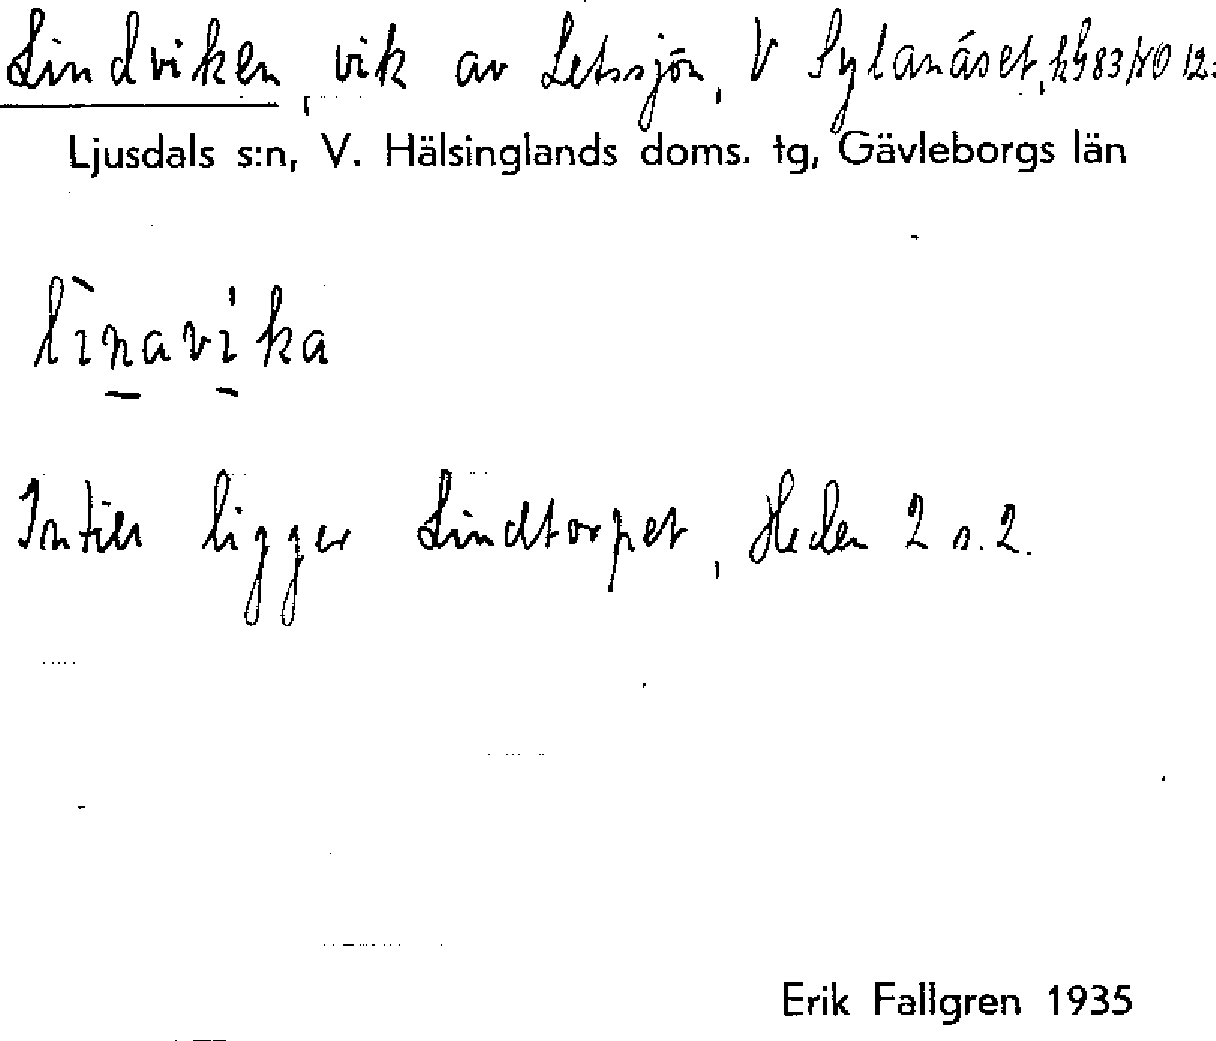 Lindviken, vik av Letssjön, V Sylanåset, kg83NO 12:
Ljusdals s:n, V. Hälsinglands doms. tg, Gävleborgs län
lìnavika
Intill ligger Lindtorpet, Heden 2 s. 2.
Erik Fallgren 1935